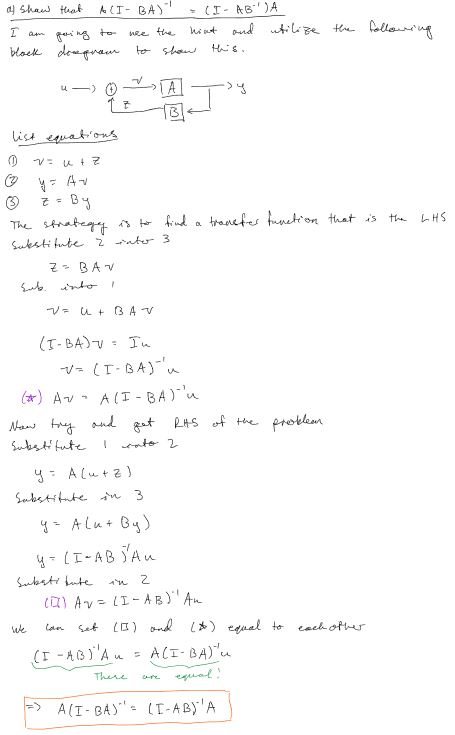 a) Show that A(I - BA)⁻¹ = (I - AB⁻¹)A
I am going to use the hint and utilize the following
block diagram to show this.
u → ⊕ v → A → y
z B
List equations
① v = u + z
② y = Av
③ z = By
The strategy is to find a transfer function that is the LHS
Substitute 2 into 3
z = BAv
Sub. into 1
v = u + BAv
(I-BA)v = Iu
v = (I-BA)⁻¹u
(☆) Av = A(I-BA)⁻¹u
Now try and get RHS of the problem
Substitute 1 into 2
y = A(u+z)
Substitute in 3
y = A(u+By)
y = (I-AB)⁻¹Au
Substitute in 2
(□) Av = (I-AB)⁻¹Au
We can set (□) and (☆) equal to each other
(I-AB)⁻¹Au = A(I-BA)⁻¹u
These are equal!
=> A(I-BA)⁻¹ = (I-AB)⁻¹A